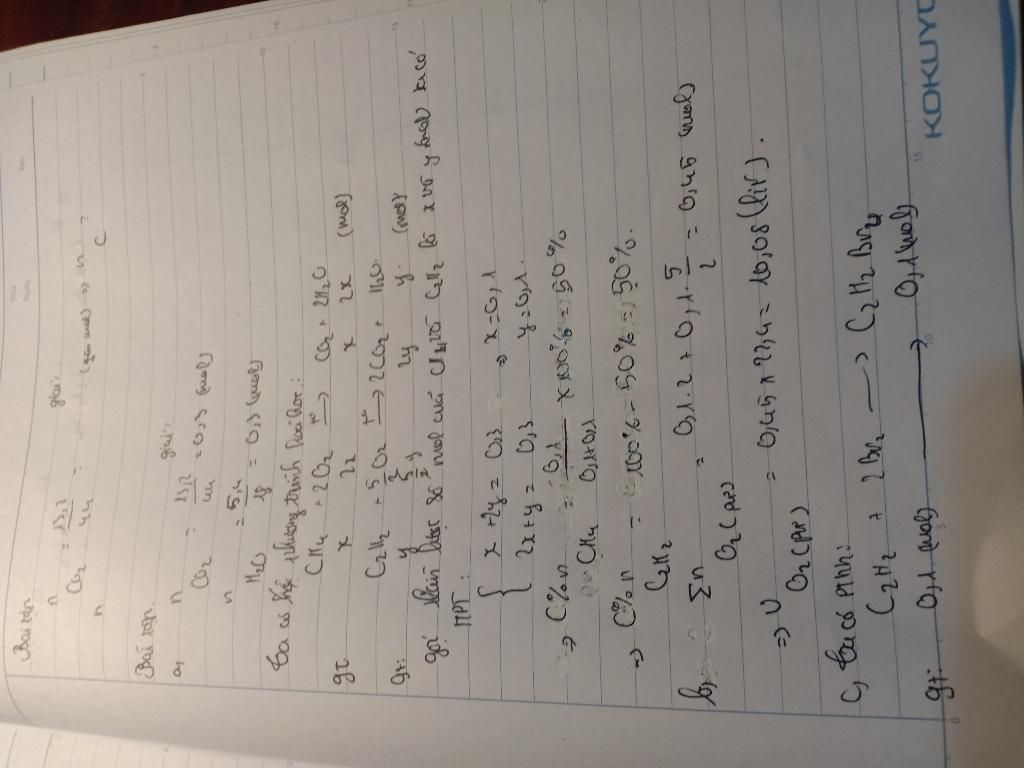 Bài tập
giải:
n CO2 = 13,2 / 44 =
n
Bài tập
giải:
a, n CO2 = 13,2 / 44 = 0,3 (mol)
n H2O = 5,4 / 18 = 0,3 (mol)
Ta có phương trình hoá học:
CH4 + 2O2 t° → CO2 + 2H2O
gt: x 2x x 2x (mol)
C2H2 + 5/2 O2 t° → 2CO2 + H2O.
gt: y 5/2 y 2y y (mol)
gọi lần lượt số mol của CH4 và C2H2 là x và y (mol) ta có
HPT:
{ x + 2y = 0,3 ⇒ x = 0,1
{ 2x + y = 0,3 y = 0,1.
⇒ C% n CH4 = 0,1 / 0,1+0,1 × 100% = 50%
⇒ C% n C2H2 = 100% - 50% = 50%.
b, Σn O2(pứ) = 0,1.2 + 0,1. 5/2 = 0,45 (mol)
⇒ V O2(pứ) = 0,45 × 22,4 = 10,08 (lít).
c, Ta có PTHH:
C2H2 + 2Br2 → C2H2Br4
gt: 0,1 (mol) → 0,1 (mol)
KOKUYO